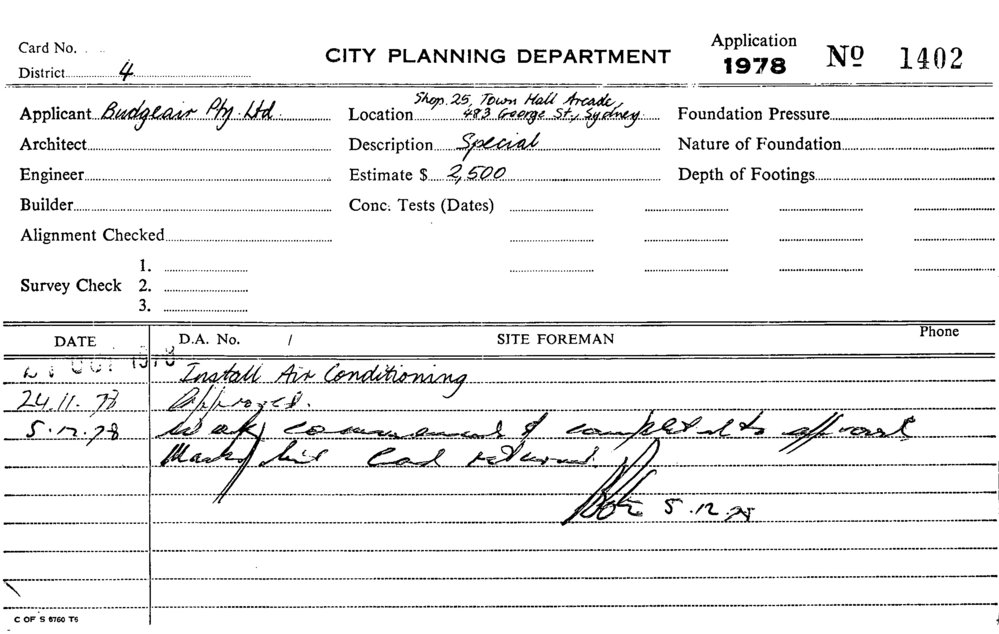 Card No.
CITY PLANNING DEPARTMENT
Application
1978
Nº 1402
District 4
Applicant Budgeair Pty. Ltd.
Location Shop. 25, Town Hall Arcade,
483 George St., Sydney
Foundation Pressure
Architect
Description Special
Nature of Foundation
Engineer
Estimate $ 2,500
Depth of Footings
Builder
Conc. Tests (Dates)
Alignment Checked
Survey Check 1.
2.
3.
DATE D.A. No. / SITE FOREMAN Phone
OCT 1978 Install Air Conditioning
24.11.78 Approved.
5.12.78 Work commenced & completed to approval
Card returned.
5.12.78
C OF S 6760 T6